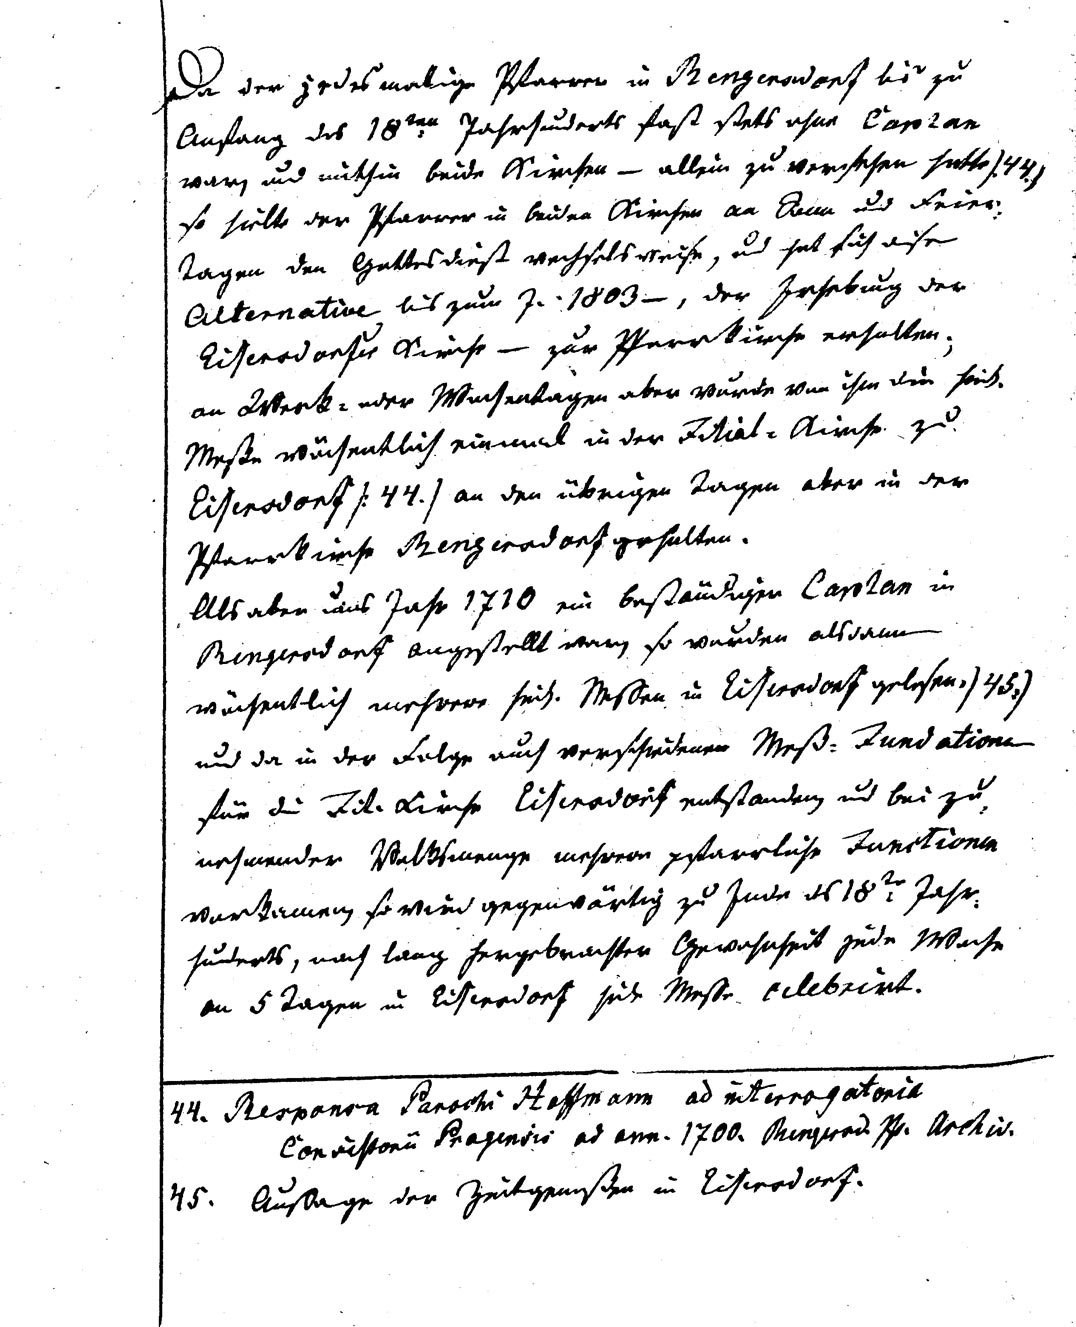 Da der jedesmalige Pfarrer in Rengersdorf bis zu
Anfang des 18ten Jahrhunderts fast stets ohne Caplan
war, und mithin beide Kirchen — allein zu versehen hatte /:44:/
so hielte der Pfarrer in beiden Kirchen an Sonn und Feier-
tagen den Gottesdienst wechselsweise, und hat sich diese
Alternative bis zum J. 1803 —, der Erhebung der
Eisersdorfer Kirche — zur Pfarrkirche erhalten;
an Werk- oder Wochentägen aber wurde von ihm die heil.
Meße wöchentlich einmal in der Filial-Kirche zu
Eisersdorf /:44.:/ an den übrigen Tagen aber in der
Pfarrkirche Rengersdorf gehalten.
Als aber ums Jahr 1710 ein beständiger Caplan in
Rengersdorf angestellt war, so wurden alsdann
wöchentlich mehrere heil. Messen in Eisersdorf gelesen /:45:/
und da in der Folge auch verschiedenen Meß-Fundationen
für die Fil. Kirche Eisersdorf entstanden, und bei zu-
nehmender Volksmenge mehrere pfarrliche Functionen
vorkamen, so wird gegenwärtig zu Ende des 18ten Jahr-
hunderts, nach lang hergebrachter Gewohnheit jede Woche
an 5 Tagen in Eisersdorf heil. Messe celebrirt.
44. Responsa Parochi Hoffmann ad interrogatoria
Consistorii Pragensis ad ann. 1700. Rengersd. Pf. Archiv.
45. Aussage der Zeitgenoßen in Eisersdorf.